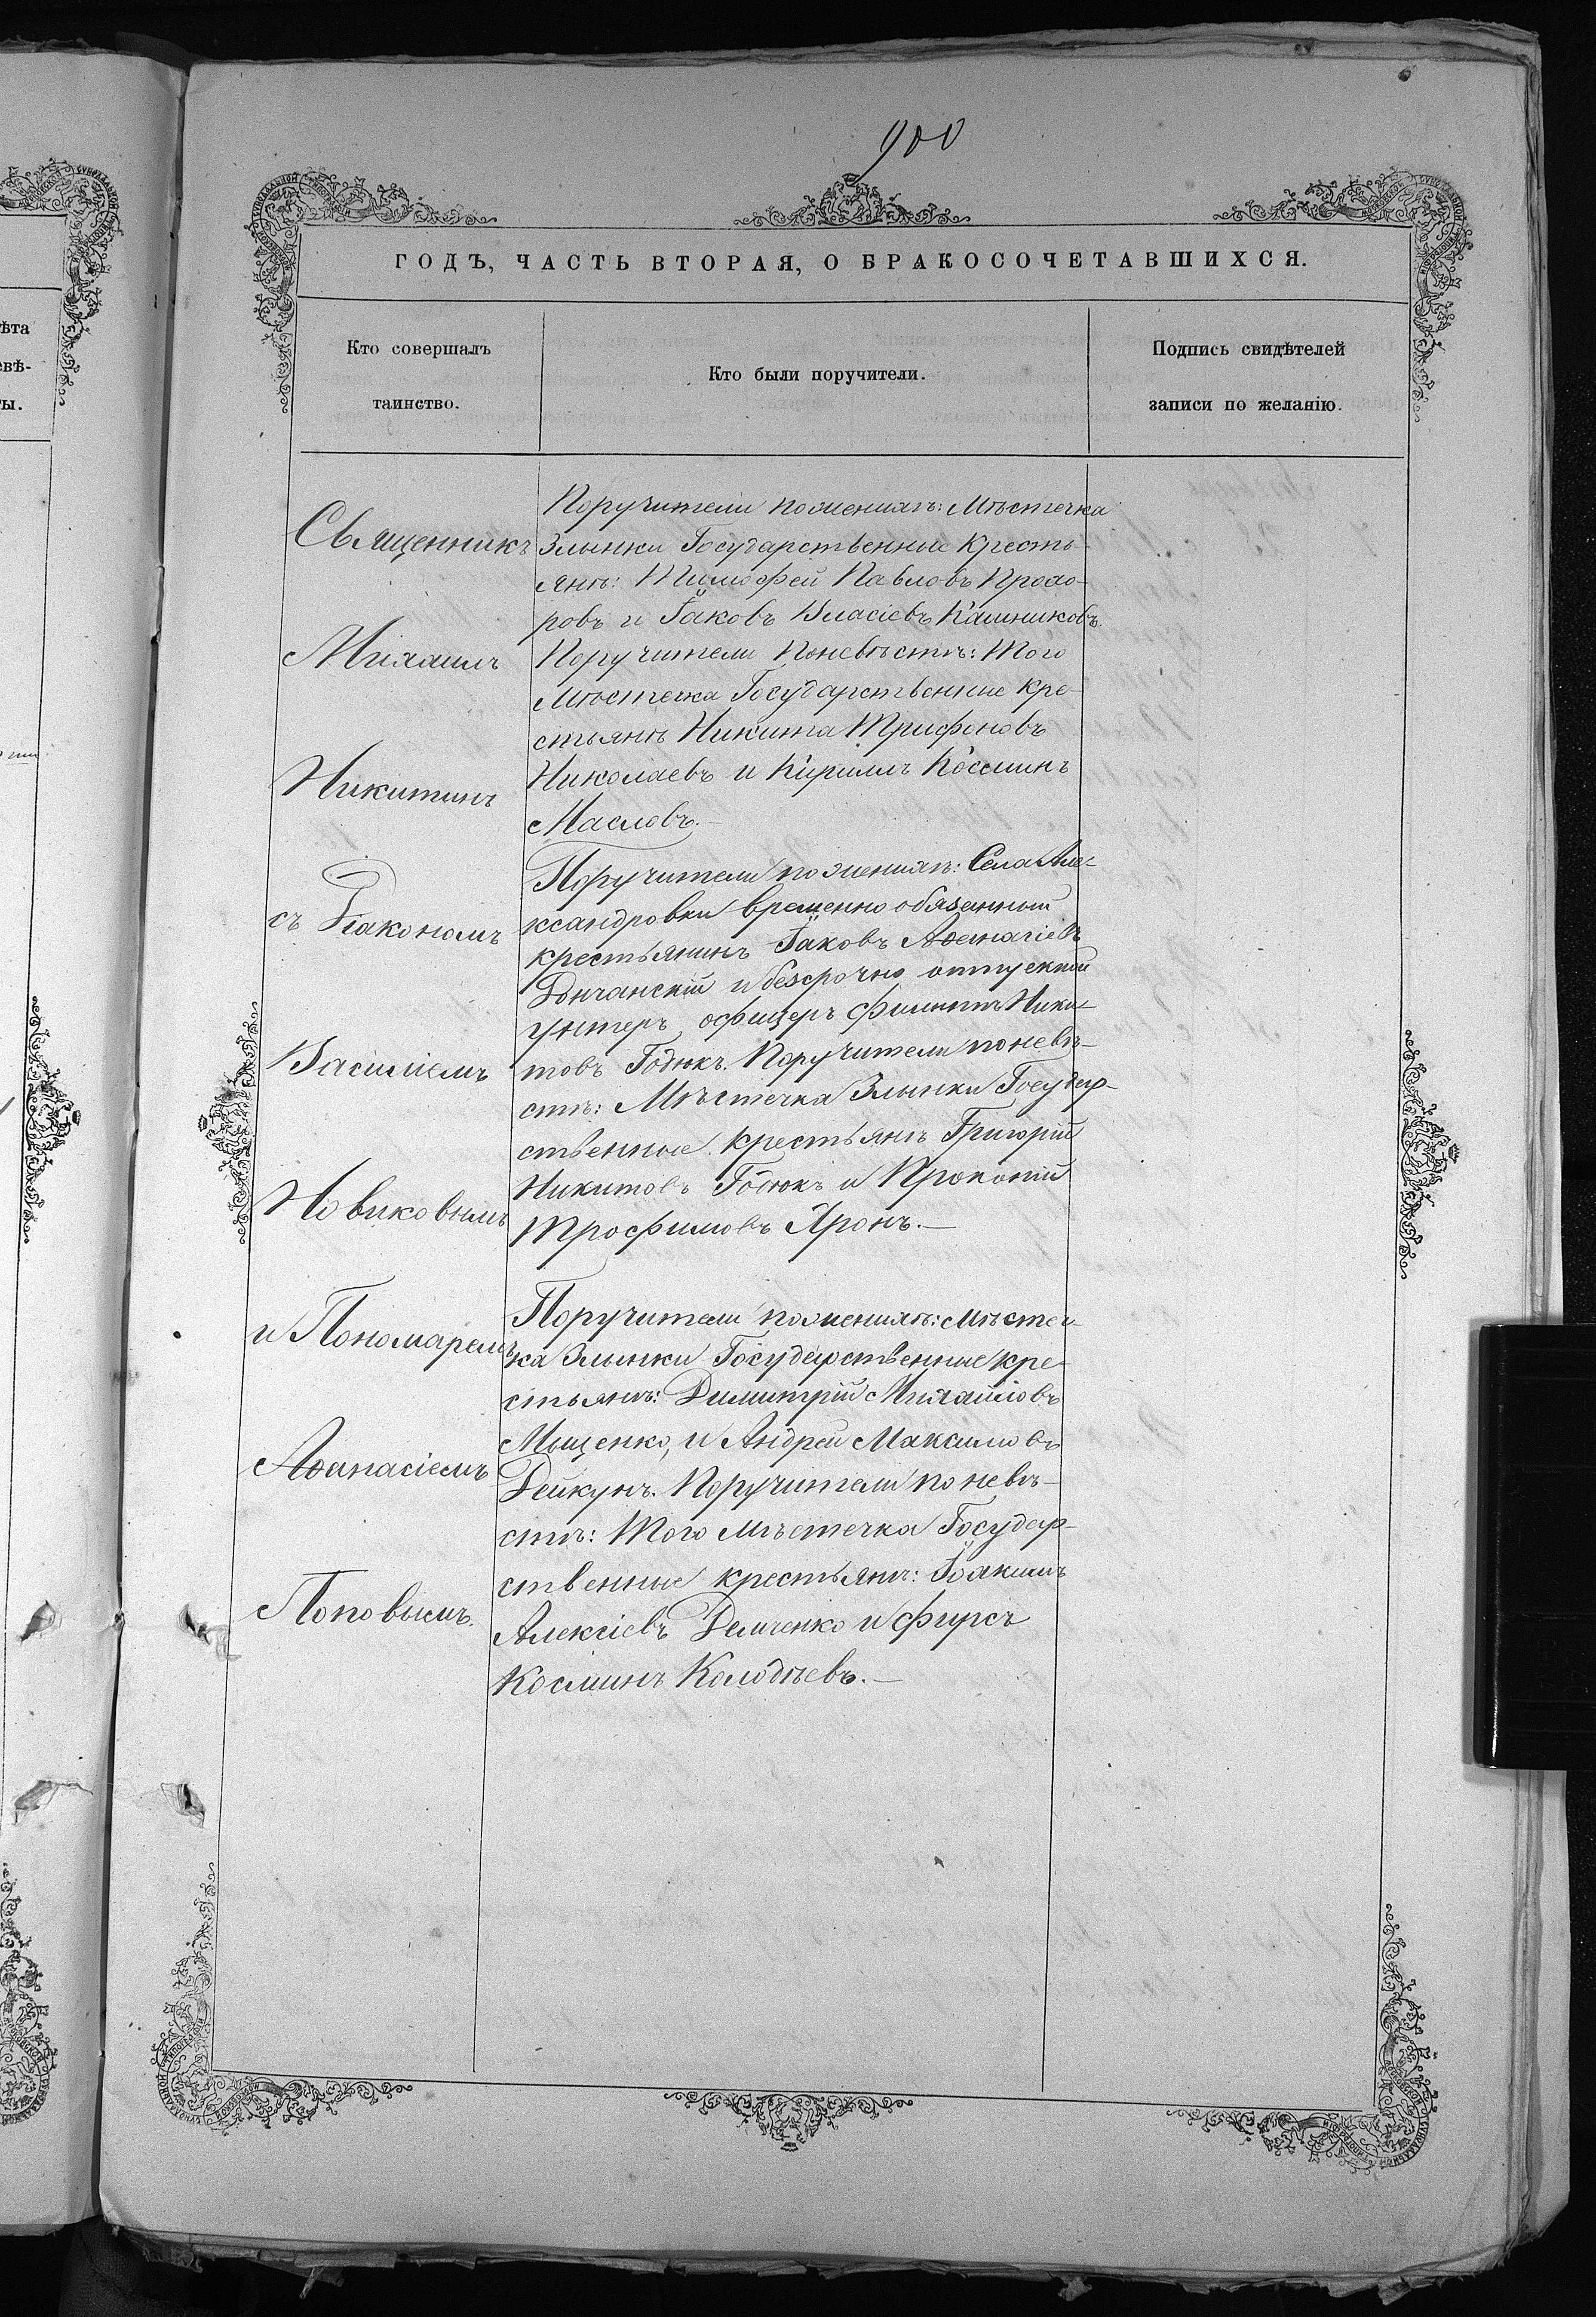 900
ГОДЪ, ЧАСТЬ ВТОРАЯ, О БРАКОСОЧЕТАВШИХСЯ.
Кто совершалъ
таинство.
Кто были поручители.
Подпись свидѣтелей
записи по желанію.
Священникъ
Михаилъ
Никитинъ
съ Діакономъ
Василіемъ
Новиковымъ
и Пономаремъ
Аѳанасіемъ
Поповымъ.
Поручители по женихѣ: Мѣстечка
Злынки Государственные Кресть-
янѣ: Тимофей Павловъ Прохо-
ровъ и Іаковъ Власіевъ Калниковъ.
Поручители Поневѣстѣ: Того
Мѣстечка Государственние кре-
стьянѣ Никита Трифоновъ
Николаевъ и Кирилъ Космин
Масловъ.—
Поручители по женихѣ: Села Але-
ксандровки временно обязанный
крестьянинъ Іаковъ Аѳанасіевъ
и безсрочно отпускній
унтеръ офицеръ Филиппъ Ники-
товъ Годюкъ. Поручители по невѣ-
стѣ: Мѣстечка Злынки Государ-
ственные крестьянѣ Григорій
Никитовъ Годюкъ и Прокопій
Трофимовъ Яронъ.—
Поручители по женихѣ: Мѣстеч-
ка Злынки Государственние кре-
стьянѣ: Димитрій Михайловъ
Мищенко, и Андрей Максимовъ
Дейкунъ. Поручители по невѣ-
стѣ: Того мѣстечка Государ-
ственные крестьянѣ: Іоакимъ
Алексіевъ Демченко и Фирсъ
Косминъ Колодѣевъ.—
ѣта
евѣ-
ты.